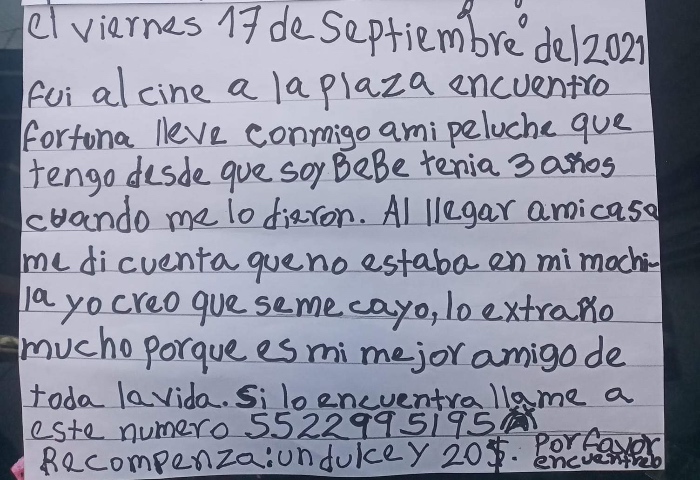 el viernes 17 de Septiembre del 2021
fui al cine a la plaza encuentro
fortuna lleve conmigo ami peluche que
tengo desde que soy BeBe tenia 3 años
cuando me lo dieron. Al llegar ami casa
me di cuenta que no estaba en mi mochi-
la yo creo que se me cayo, lo extraño
mucho porque es mi mejor amigo de
toda la vida. Si lo encuentra llame a
este numero 5522995195
Recompenza: un dulce Y 20$. Por favor
encuentrelo